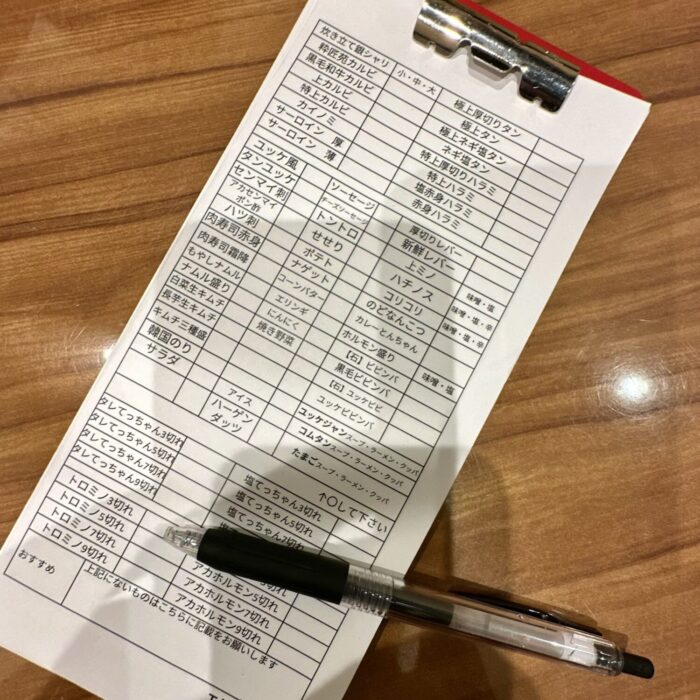 炊き立て銀シャリ 小・中・大
粋匠苑カルビ
黒毛和牛カルビ
上カルビ
特上カルビ
カイノミ
サーロイン 厚
サーロイン 薄
極上厚切りタン
極上タン
極上ネギ塩タン
ネギ塩タン
特上厚切りハラミ
特上ハラミ
塩赤身ハラミ
赤身ハラミ
ユッケ風
タンユッケ
センマイ刺
アカセンマイ
ポン酢
ハツ刺
肉寿司赤身
肉寿司霜降
もやしナムル
ナムル盛り
白菜生キムチ
長芋生キムチ
キムチ三種盛
韓国のり
サラダ
ソーセージ
チーズソーセージ
トントロ
せせり
ポテト
ナゲット
コーンバター
エリンギ
にんにく
焼き野菜
アイス
ハーゲン
ダッツ
厚切りレバー
新鮮レバー
上ミノ 味噌・塩
ハチノス 味噌・塩・辛
コリコリ 味噌・塩・辛
のどなんこつ
カレーとんちゃん
ホルモン盛り 味噌・塩
【石】ビビンバ
黒毛ビビンバ
【石】ユッケビビ
ユッケビビンバ
ユッケジャンスープ・ラーメン・クッパ
コムタンスープ・ラーメン・クッパ
たまごスープ・ラーメン・クッパ
↑〇して下さい
タレてっちゃん3切れ
タレてっちゃん5切れ
タレてっちゃん7切れ
タレてっちゃん9切れ
塩てっちゃん3切れ
塩てっちゃん5切れ
塩てっちゃん7切れ
トロミノ3切れ
トロミノ5切れ
トロミノ7切れ
トロミノ9切れ
アカホルモン5切れ
アカホルモン7切れ
アカホルモン9切れ
おすすめ
上記にないものはこちらに記載をお願いします